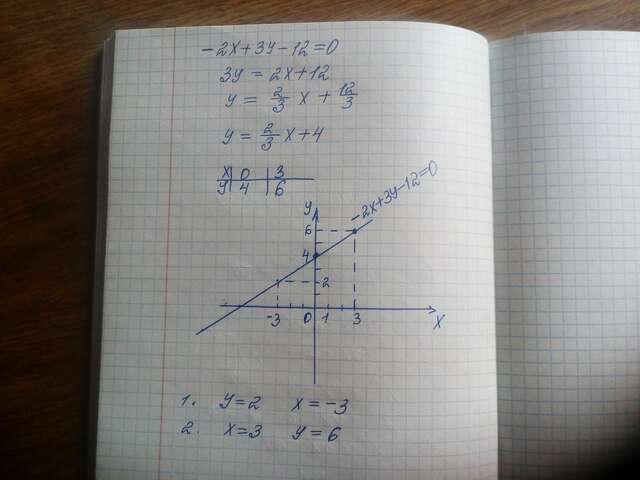 -2x+3y-12=0
3y = 2x+12
y = 2/3 x + 12/3
y = 2/3 x+4
x 0 3
y 4 6
y -2x+3y-12=0
6
4
2
-3 0 1 3 x
1. y=2 x=-3
2. x=3 y=6